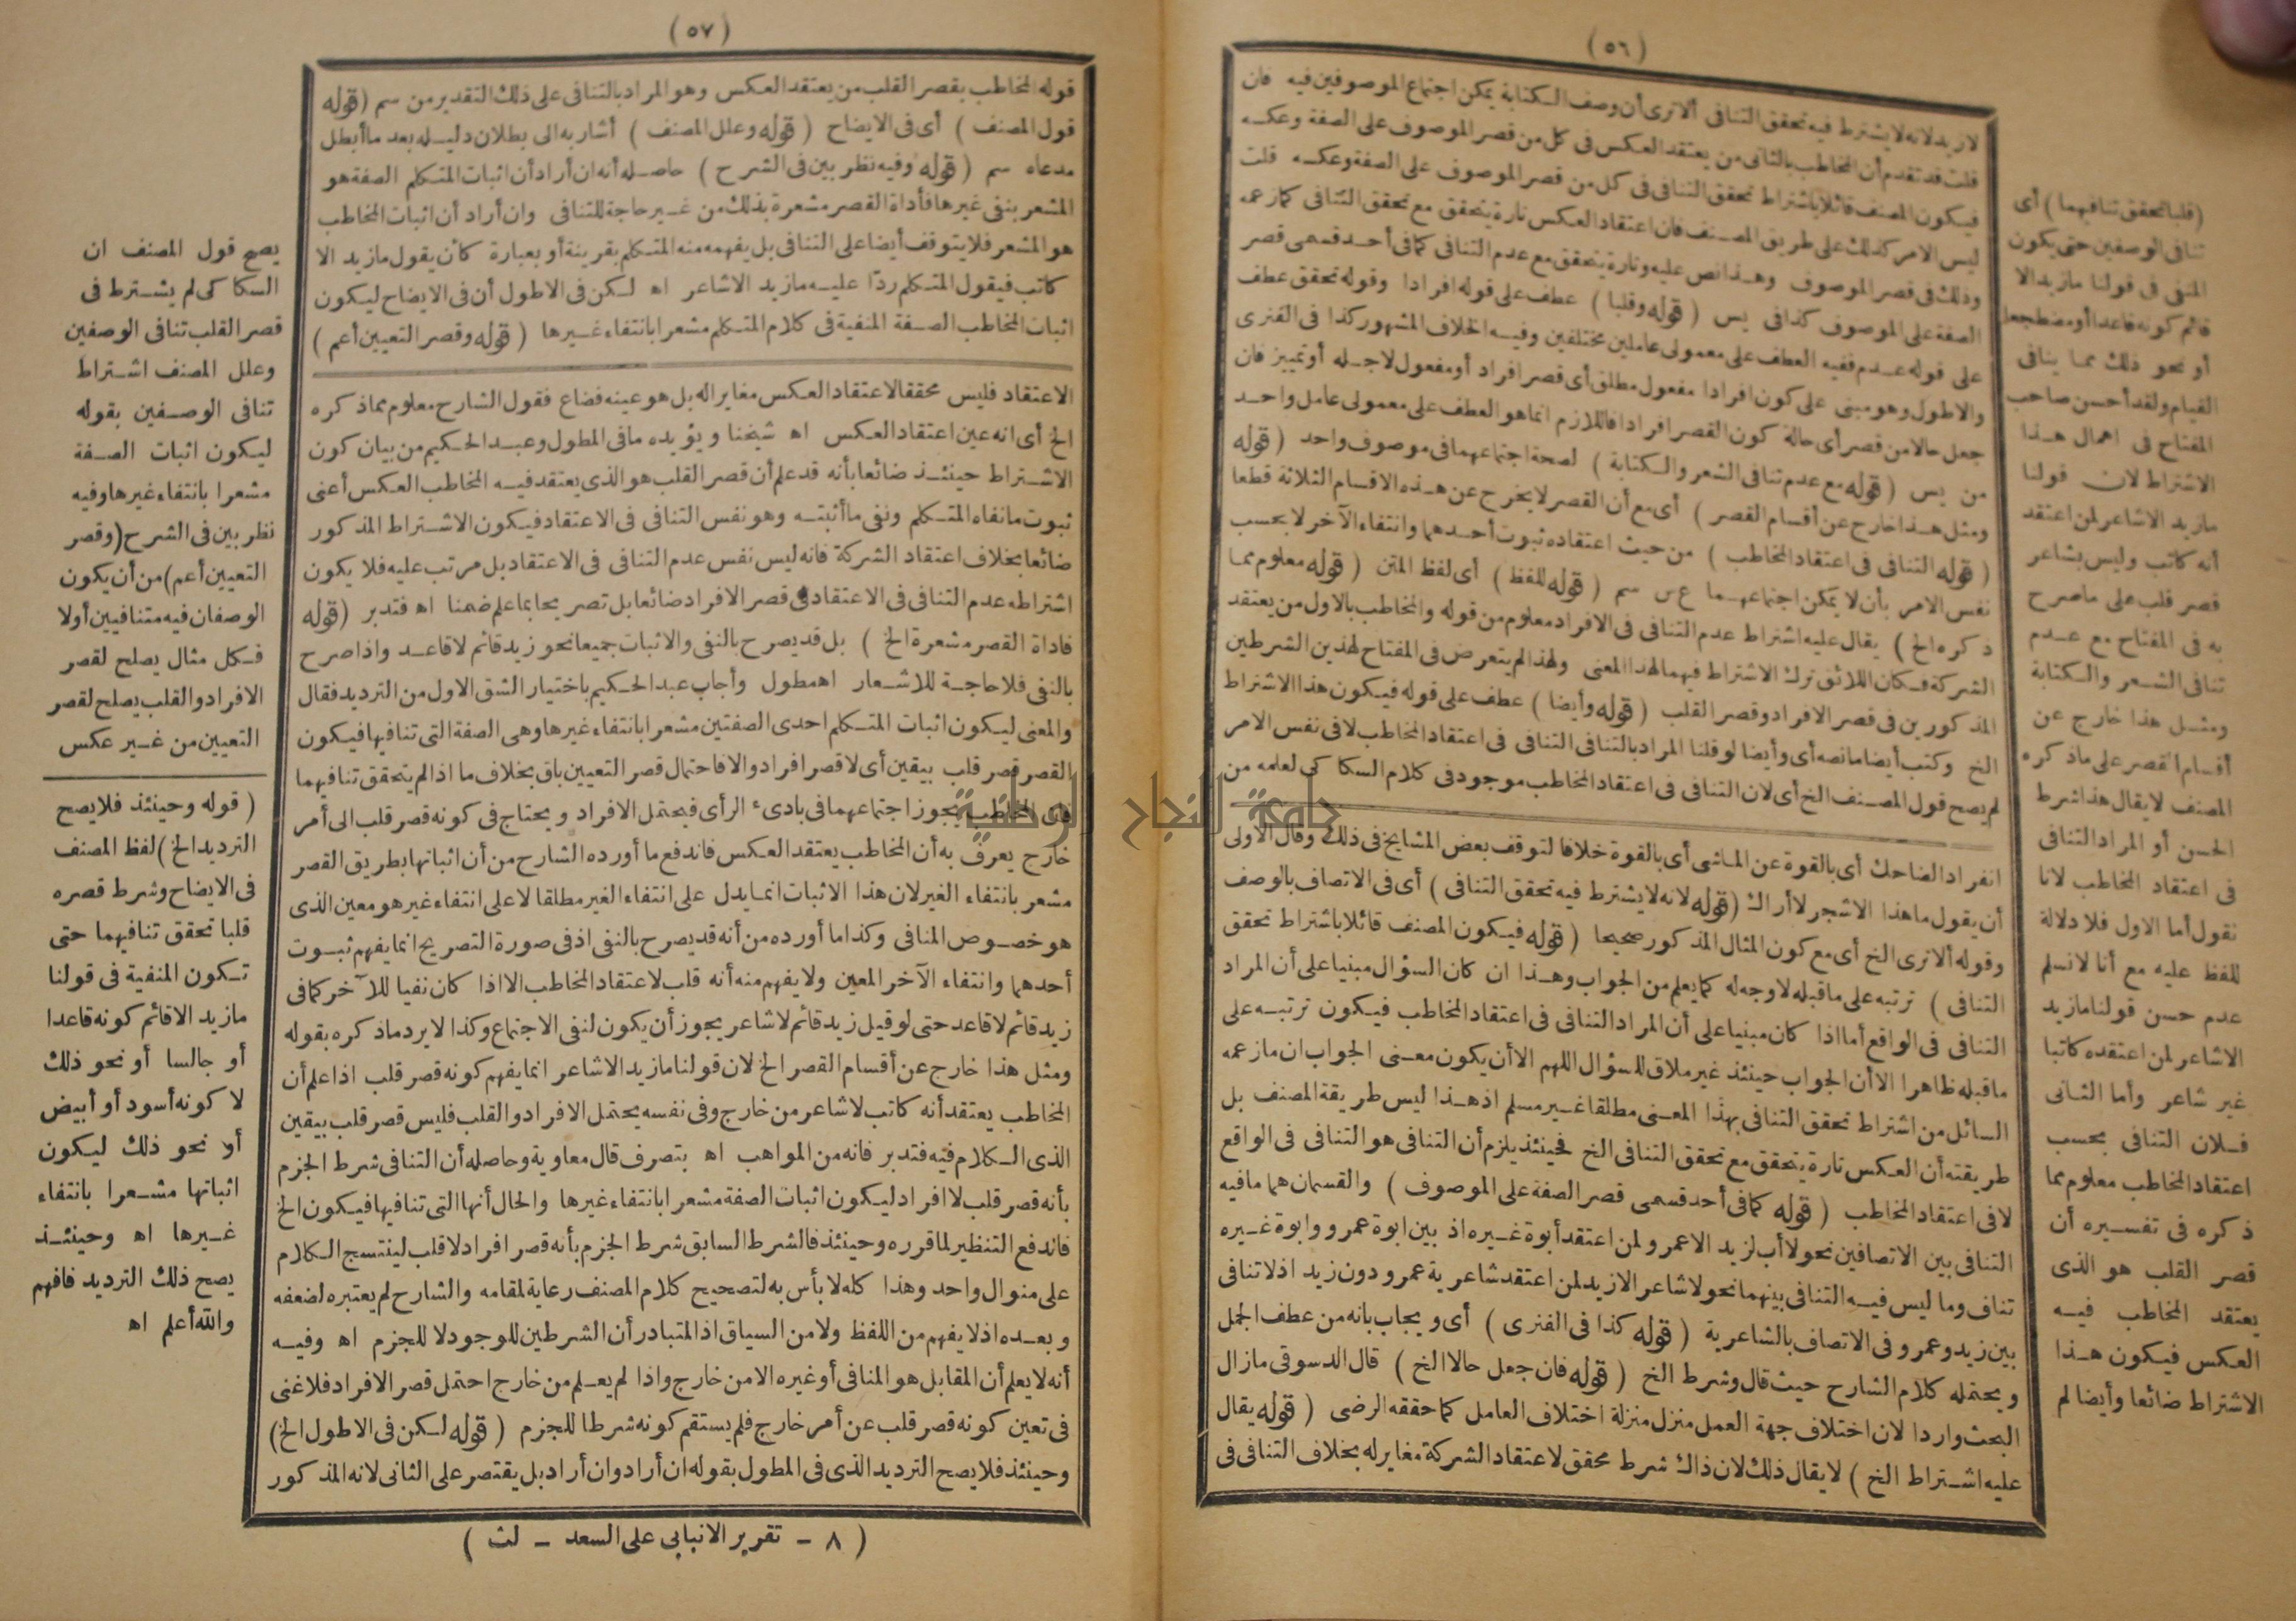 ( ٥٦ )
لا زيد لانه لا يشترط فيه تحقق التنافى ألا ترى أن وصف الكتابة يمكن اجتماع الموصوفين فيه فان
قلت قد تقدم أن المخاطب بالثانى من يعتقد العكس فى كل من قصر الموصوف على الصفة وعكسه
فيكون المصنف قائلا باشتراط تحقق التنافى فى كل من قصر الموصوف على الصفة وعكسه قلت
ليس الامر كذلك على طريق المصنف فان اعتقاد العكس تارة يتحقق مع تحقق التنافى كما زعمه
وذلك فى قصر الموصوف وهذا نص عليه وتارة يتحقق مع عدم التنافى كما فى أحد قسمى قصر
الصفة على الموصوف كذا فى يس ( قوله وقلبا ) عطف على قوله افرادا وقوله تحقق عطف
على قوله عدم ففيه العطف على معمولى عاملين مختلفين وفيه الخلاف المشهور كذا فى الفنرى
والاطول وهو مبنى على كون افرادا مفعول مطلق أى قصر افراد أو مفعول لاجله أو تمييز فان
جعل حالا من قصر أى حالة كون القصر افرادا فاللازم انما هو العطف على معمولى عامل واحد
من يس ( قوله مع عدم تنافى الشعر والكتابة ) لصحة اجتماعهما فى موصوف واحد ( قوله
ومثل هذا خارج عن أقسام القصر ) أى مع أن القصر لا يخرج عن هذه الاقسام الثلاثة قطعا
( قوله التنافى فى اعتقاد المخاطب ) من حيث اعتقاده ثبوت أحدهما وانتفاء الآخر لا بحسب
نفس الامر بأن لا يمكن اجتماعهما ع س سم ( قوله للفظ ) أى لفظ المتن ( قوله معلوم مما
ذكره الخ ) يقال عليه اشتراط عدم التنافى فى الافراد معلوم من قوله والمخاطب بالاول من يعتقد
الشركة فكان اللائق ترك الاشتراط فيهما لهذا المعنى ولهذا لم يتعرض فى المفتاح لهذين الشرطين
المذكورين فى قصر الافراد وقصر القلب ( قوله وأيضا ) عطف على قوله فيكون هذا الاشتراط
الخ وكتب أيضا ما نصه أى وأيضا لو قلنا المراد بالتنافى التنافى فى اعتقاد المخاطب لا فى نفس الامر
لم يصح قول المصنف الخ أى لان التنافى فى اعتقاد المخاطب موجود فى كلام السكاكى لعلمه من
انفراد الضاحك أى بالقوة عن الماشى أى بالقوة خلافا لتوقف بعض المشايخ فى ذلك وقال الاولى
أن يقول ما هذا الا شجر لا أراك ( قوله لانه لا يشترط فيه تحقق التنافى ) أى فى الاتصاف بالوصف
وقوله ألا ترى الخ أى مع كون المثال المذكور صحيحا ( قوله فيكون المصنف قائلا باشتراط تحقق
التنافى ) ترتبه على ما قبله لا وجه له كما يعلم من الجواب وهذا ان كان السؤال مبنيا على أن المراد
التنافى فى الواقع أما اذا كان مبنيا على أن المراد التنافى فى اعتقاد المخاطب فيكون ترتبه على
ما قبله ظاهرا الا أن الجواب حينئذ غير ملاق للسؤال اللهم الا أن يكون معنى الجواب ان ما زعمه
السائل من اشتراط تحقق التنافى بهذا المعنى مطلقا غير مسلم اذ هذا ليس طريقة المصنف بل
طريقته أن العكس تارة يتحقق مع تحقق التنافى الخ فحينئذ يلزم أن التنافى هو التنافى فى الواقع
لا فى اعتقاد المخاطب ( قوله كما فى أحد قسمى قصر الصفة على الموصوف ) والقسمان هما ما فيه
التنافى بين الاتصافين نحو لا أب لزيد الا عمرو لمن اعتقد أبوة غيره اذ بين ابوة عمرو وابوة غيره
تناف وما ليس فيه التنافى بينهما نحو لا شاعر الا زيد لمن اعتقد شاعرية عمرو دون زيد اذ لا تنافى
بين زيد وعمرو فى الاتصاف بالشاعرية ( قوله كذا فى الفنرى ) أى ويجاب بأنه من عطف الجمل
ويحتمله كلام الشارح حيث قال وشرط الخ ( قوله فان جعل حالا الخ ) قال الدسوقى ما زال
البحث واردا لان اختلاف جهة العمل منزل منزلة اختلاف العامل كما حققه الرضى ( قوله يقال
عليه اشتراط الخ ) لا يقال ذلك لان ذاك شرط محقق لاعتقاد الشركة مغاير له بخلاف التنافى فى
(قلبا تحقق تنافيهما) أى
تنافى الوصفين حتى يكون
المنفى فى قولنا ما زيد الا
قائم كونه قاعدا أو مضطجعا
أو نحو ذلك مما ينافى
القيام ولقد أحسن صاحب
المفتاح فى اهمال هذا
الاشتراط لان قولنا
ما زيد الا شاعر لمن اعتقد
أنه كاتب وليس بشاعر
قصر قلب على ما صرح
به فى المفتاح مع عدم
تنافى الشعر والكتابة
ومثل هذا خارج عن
أقسام القصر على ما ذكره
المصنف لا يقال هذا شرط
الحسن أو المراد التنافى
فى اعتقاد المخاطب لانا
نقول أما الاول فلا دلالة
للفظ عليه مع أنا لا نسلم
عدم حسن قولنا ما زيد
الا شاعر لمن اعتقده كاتبا
غير شاعر وأما الثانى
فلان التنافى بحسب
اعتقاد المخاطب معلوم مما
ذكره فى تفسيره أن
قصر القلب هو الذى
يعتقد المخاطب فيه
العكس فيكون هذا
الاشتراط ضائعا وأيضا لم
( ٥٧ )
قوله المخاطب بقصر القلب من يعتقد العكس وهو المراد بالتنافى على ذلك التقدير من سم ( قوله
قول المصنف ) أى فى الايضاح ( قوله وعلل المصنف ) أشار به الى بطلان دليله بعد ما أبطل
مدعاه سم ( قوله وفيه نظر بين فى الشرح ) حاصله أنه ان أراد أن اثبات المتكلم الصفة هو
المشعر بنفى غيرها فأداة القصر مشعرة بذلك من غير حاجة للتنافى وان أراد أن اثبات المخاطب
هو المشعر فلا يتوقف أيضا على التنافى بل يفهمه منه المتكلم بقرينة أو بعبارة كأن يقول ما زيد الا
كاتب فيقول المتكلم ردّا عليه ما زيد الا شاعر اه لكن فى الاطول أن فى الايضاح ليكون
اثبات المخاطب الصفة المنفية فى كلام المتكلم مشعرا بانتفاء غيرها ( قوله وقصر التعيين أعم )
الاعتقاد فليس محققا لاعتقاد العكس مغايرا له بل هو عينه فضاع فقول الشارح معلوم مما ذكره
الخ أى انه عين اعتقاد العكس اه شيخنا ويؤيده ما فى المطول وعبد الحكيم من بيان كون
الاشتراط حينئذ ضائعا بأنه قد علم أن قصر القلب هو الذى يعتقد فيه المخاطب العكس أعنى
ثبوت ما نفاه المتكلم ونفى ما أثبته وهو نفس التنافى فى الاعتقاد فيكون الاشتراط المذكور
ضائعا بخلاف اعتقاد الشركة فانه ليس نفس عدم التنافى فى الاعتقاد بل مرتب عليه فلا يكون
اشتراطه عدم التنافى فى الاعتقاد فى قصر الافراد ضائعا بل تصريحا بما علم ضمنا اه فتدبر ( قوله
فاداة القصر مشعرة الخ ) بل قد يصرح بالنفى والاثبات جميعا نحو زيد قائم لا قاعد واذا صرح
بالنفى فلا حاجة للاشعار اه مطول وأجاب عبد الحكيم باختيار الشق الاول من الترديد فقال
والمعنى ليكون اثبات المتكلم احدى الصفتين مشعرا بانتفاء غيرها وهى الصفة التى تنافيها فيكون
القصر قصر قلب بيقين أى لا قصر افراد والا فاحتمال قصر التعيين باق بخلاف ما اذا لم يتحقق تنافيهما
فان المخاطب يجوز اجتماعهما فى بادىء الرأى فيحتمل الافراد ويحتاج فى كونه قصر قلب الى أمر
خارج يعرف به أن المخاطب يعتقد العكس فاندفع ما أورده الشارح من أن اثباتها بطريق القصر
مشعر بانتفاء الغير لان هذا الاثبات انما يدل على انتفاء الغير مطلقا لا على انتفاء غير هو معين الذى
هو خصوص المنافى وكذا ما أورده من أنه قد يصرح بالنفى اذ فى صورة التصريح انما يفهم ثبوت
أحدهما وانتفاء الآخر المعين ولا يفهم منه أنه قلب لاعتقاد المخاطب الا اذا كان نفيا للآخر كما فى
زيد قائم لا قاعد حتى لو قيل زيد قائم لا شاعر يجوز أن يكون لنفى الاجتماع وكذا لا يرد ما ذكره بقوله
ومثل هذا خارج عن أقسام القصر الخ لان قولنا ما زيد الا شاعر انما يفهم كونه قصر قلب اذا علم أن
المخاطب يعتقد أنه كاتب لا شاعر من خارج وفى نفسه يحتمل الافراد والقلب فليس قصر قلب بيقين
الذى الكلام فيه فتدبر فانه من المواهب اه بتصرف قال معاوية وحاصله أن التنافى شرط الجزم
بأنه قصر قلب لا افراد ليكون اثبات الصفة مشعرا بانتفاء غيرها والحال أنها التى تنافيها فيكون الخ
فاندفع التنظير لما قرره وحينئذ فالشرط السابق شرط الجزم بأنه قصر افراد لا قلب لينتسج الكلام
على منوال واحد وهذا كله لا بأس به لتصحيح كلام المصنف رعاية لمقامه والشارح لم يعتبره لضعفه
وبعده اذ لا يفهم من اللفظ ولا من السياق اذ المتبادر أن الشرطين للوجود لا للجزم اه وفيه
أنه لا يعلم أن المقابل هو المنافى أو غيره الا من خارج واذا لم يعلم من خارج احتمل قصر الافراد فلا غنى
فى تعين كونه قصر قلب عن أمر خارج فلم يستقم كونه شرطا للجزم ( قوله لكن فى الاطول الخ )
وحينئذ فلا يصح الترديد الذى فى المطول بقوله ان أراد وان أراد بل يقتصر على الثانى لانه المذكور
يصح قول المصنف ان
السكاكى لم يشترط فى
قصر القلب تنافى الوصفين
وعلل المصنف اشتراط
تنافى الوصفين بقوله
ليكون اثبات الصفة
مشعرا بانتفاء غيرها وفيه
نظر بين فى الشرح (وقصر
التعيين أعم) من أن يكون
الوصفان فيه متنافيين أو لا
فكل مثال يصلح لقصر
الافراد والقلب يصلح لقصر
التعيين من غير عكس
( قوله وحينئذ فلا يصح
الترديد الخ ) لفظ المصنف
فى الايضاح وشرط قصره
قلبا تحقق تنافيهما حتى
تكون المنفية فى قولنا
ما زيد الا قائم كونه قاعدا
أو جالسا أو نحو ذلك
لا كونه أسود أو أبيض
أو نحو ذلك ليكون
اثباتها مشعرا بانتفاء
غيرها اه وحينئذ
يصح ذلك الترديد فافهم
والله أعلم اه
( ٨ - تقرير الانبابى على السعد - لث )
جامعة النجاح الوطنية